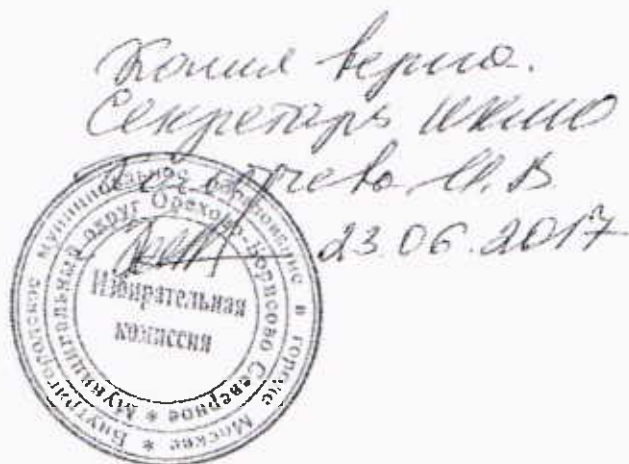 Копия верна.
Секретарь ИКМО
И.В.
23.06.2017
Внутригородское муниципальное образование в городе Москве *
Муниципальный округ Орехово-Борисово Северное *
Избирательная
комиссия